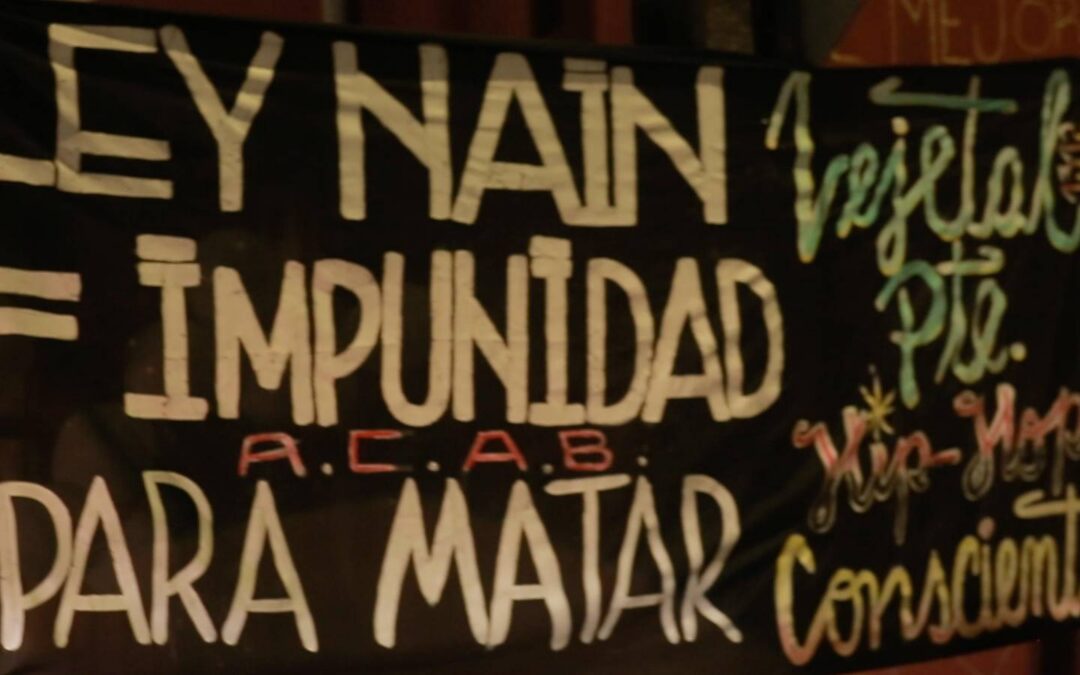 MEJOR
LEY NAIN
= IMPUNIDAD
A.C.A.B.
PARA MATAR
Vejetal
Pte.
Hip-Hop
Conscient